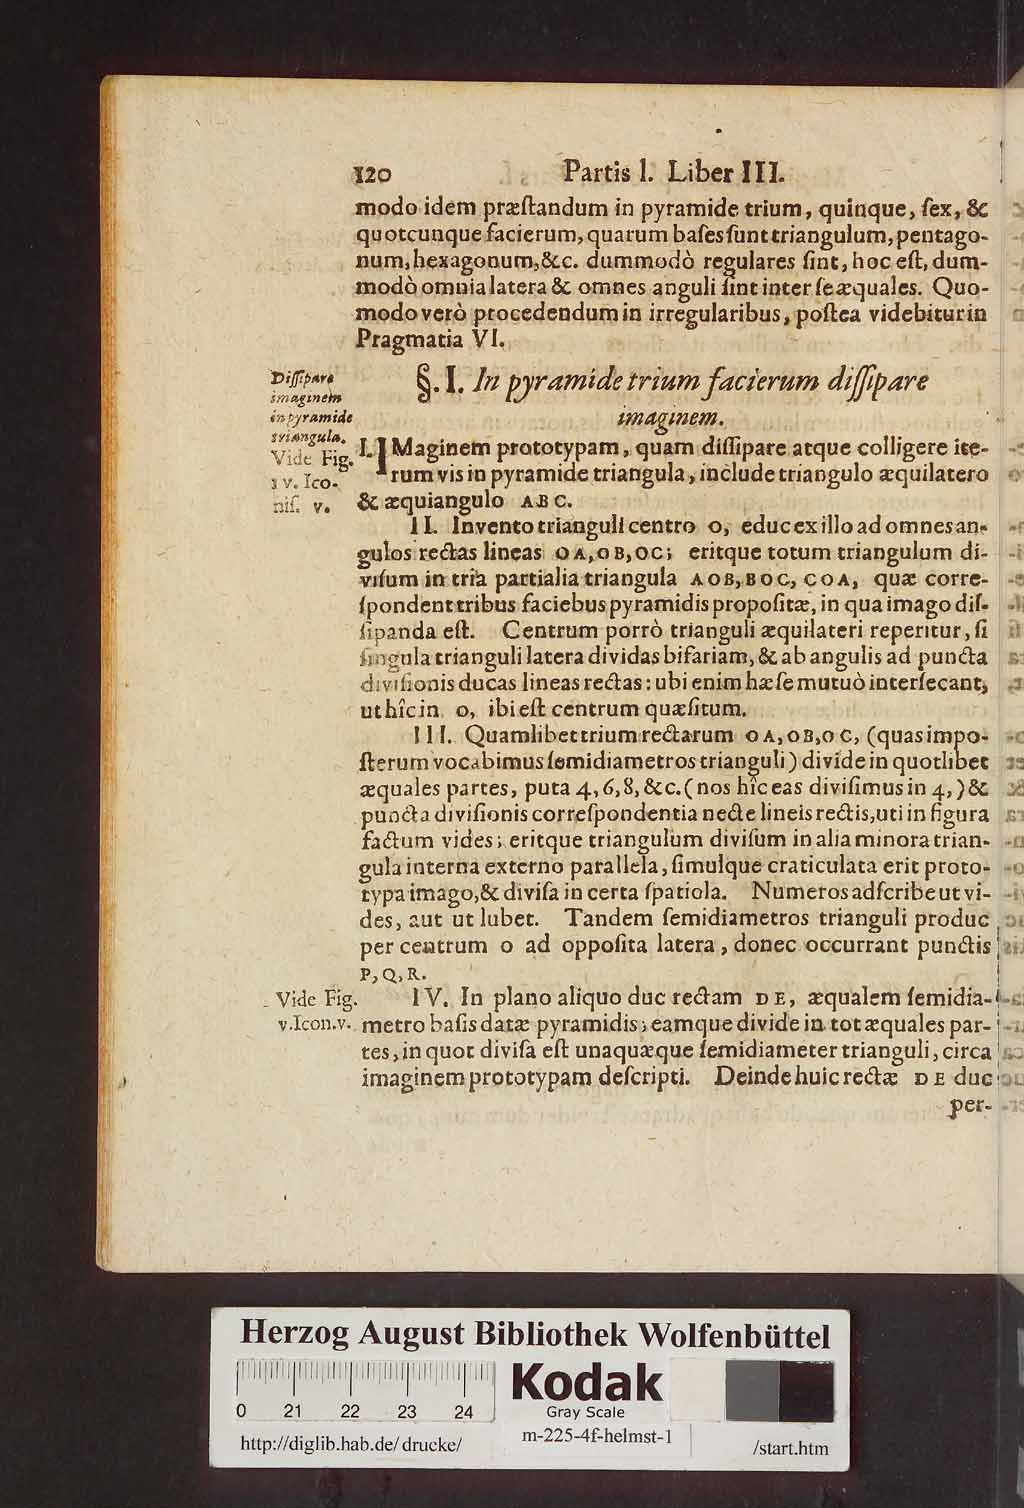 120 Partis I. Liber III.
modo idem præſtandum in pyramide trium, quinque, ſex, &
quotcunque facierum, quarum baſes ſunt triangulum, pentago-
num, hexagonum, &c. dummodò regulares ſint, hoc eſt, dum-
modò omnia latera & omnes anguli ſint inter ſe æquales. Quo-
modo verò procedendum in irregularibus, poſtea videbitur in
Pragmatia VI.
§. I. In pyramide trium facierum diſſipare
imaginem.
Diſſipare
imaginem
in pyramide
triangula.
Vide Fig.
IV. Ico-
niſ. v.
I. IMaginem prototypam, quam diſſipare atque colligere ite-
rum vis in pyramide triangula, include triangulo æquilatero
& æquiangulo ABC.
II. Invento trianguli centro O, educ ex illo ad omnes an-
gulos rectas lineas OA, OB, OC; eritque totum triangulum di-
viſum in tria partialia triangula AOB, BOC, COA, quæ corre-
ſpondent tribus faciebus pyramidis propoſitæ, in qua imago diſ-
ſipanda eſt. Centrum porrò trianguli æquilateri reperitur, ſi
ſingula trianguli latera dividas bifariam, & ab angulis ad puncta
diviſionis ducas lineas rectas: ubi enim hæ ſe mutuò interſecant,
ut hîc in O, ibi eſt centrum quæſitum.
III. Quamlibet trium rectarum OA, OB, OC, (quas impo-
ſterum vocabimus ſemidiametros trianguli) divide in quotlibet
æquales partes, puta 4, 6, 8, &c. (nos hîc eas diviſimus in 4,) &
puncta diviſionis correſpondentia necte lineis rectis, uti in figura
factum vides; eritque triangulum diviſum in alia minora trian-
gula interna externo parallela, ſimulque craticulata erit proto-
typa imago, & diviſa in certa ſpatiola. Numeros adſcribe ut vi-
des, aut ut lubet. Tandem ſemidiametros trianguli produc
per centrum O ad oppoſita latera, donec occurrant punctis
P, Q, R.
Vide Fig.
v. Icon. v.
IV. In plano aliquo duc rectam DE, æqualem ſemidia-
metro baſis datæ pyramidis; eamque divide in tot æquales par-
tes, in quot diviſa eſt unaquæque ſemidiameter trianguli, circa
imaginem prototypam deſcripti. Deinde huic rectæ DE duc
per-
Herzog August Bibliothek Wolfenbüttel
0 21 22 23 24
Kodak
Gray Scale
http://diglib.hab.de/drucke/
m-225-4f-helmst-1
/start.htm